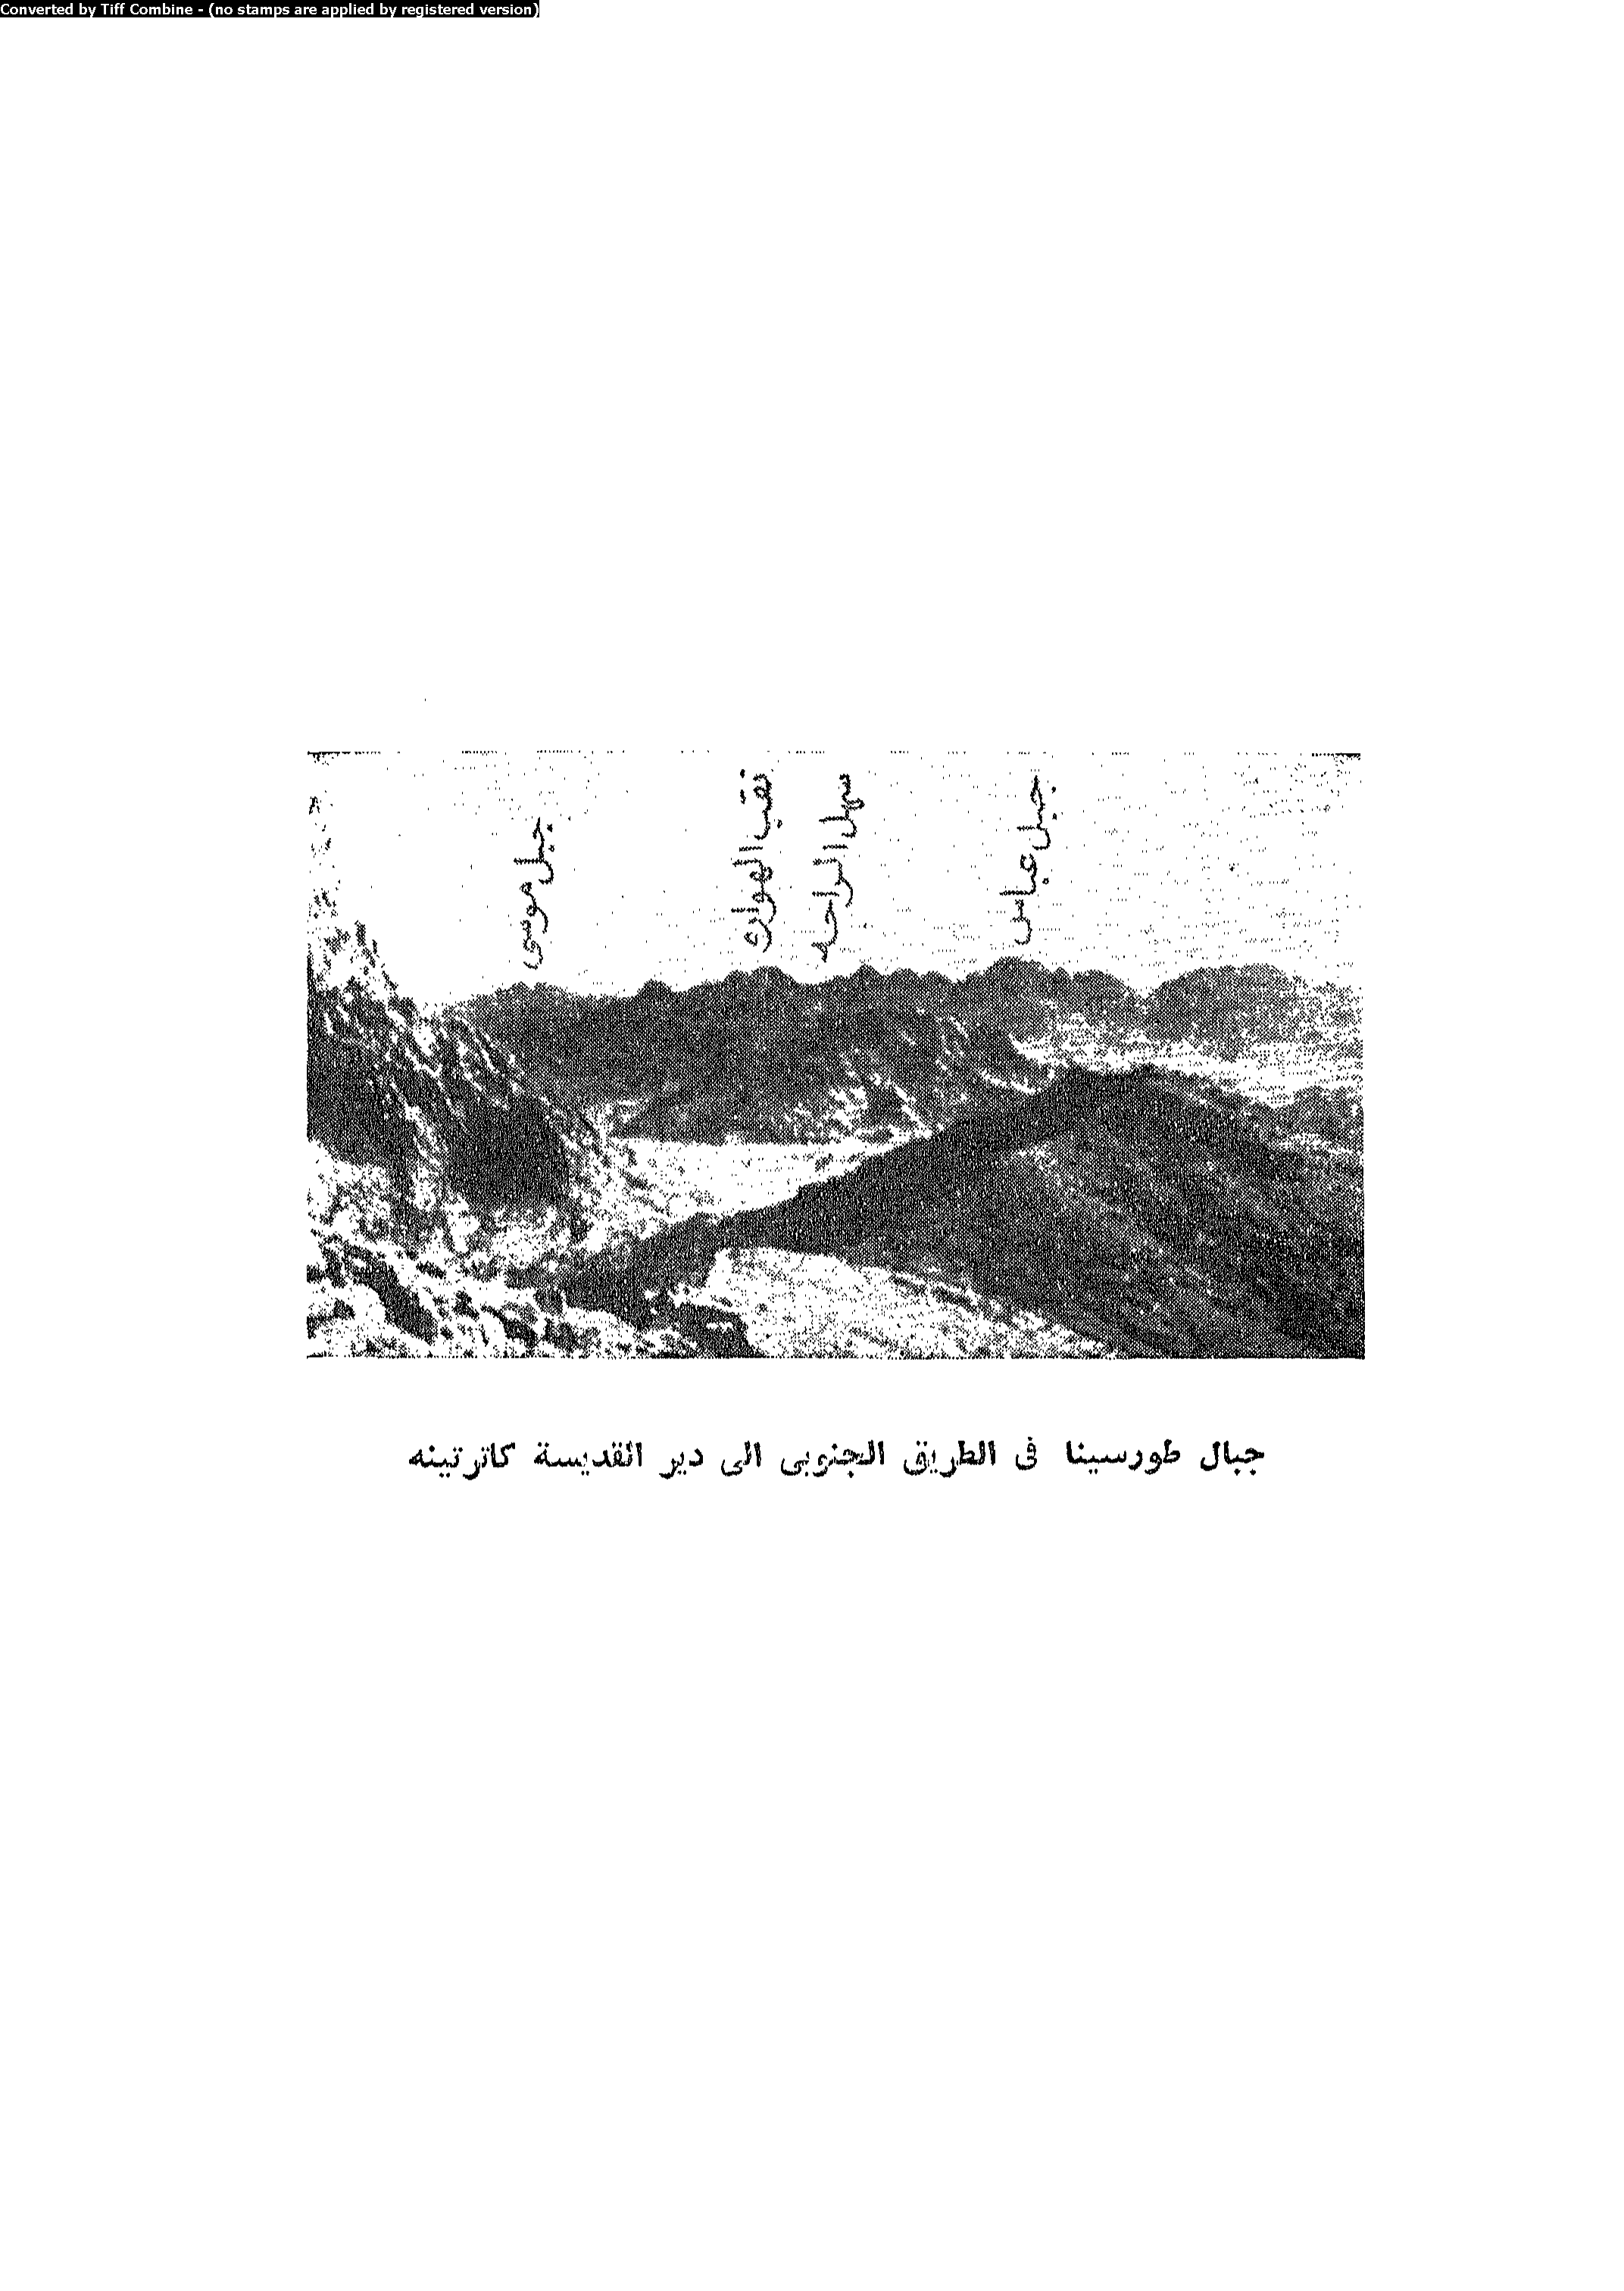 Converted by Tiff Combine - (no stamps are applied by registered version)
جبل عباس
سهل الراحه
نقب الهواك
جبل موسى
جبال طورسينا فى الطريق الجنوبى الى دير القديسة كاترتينه